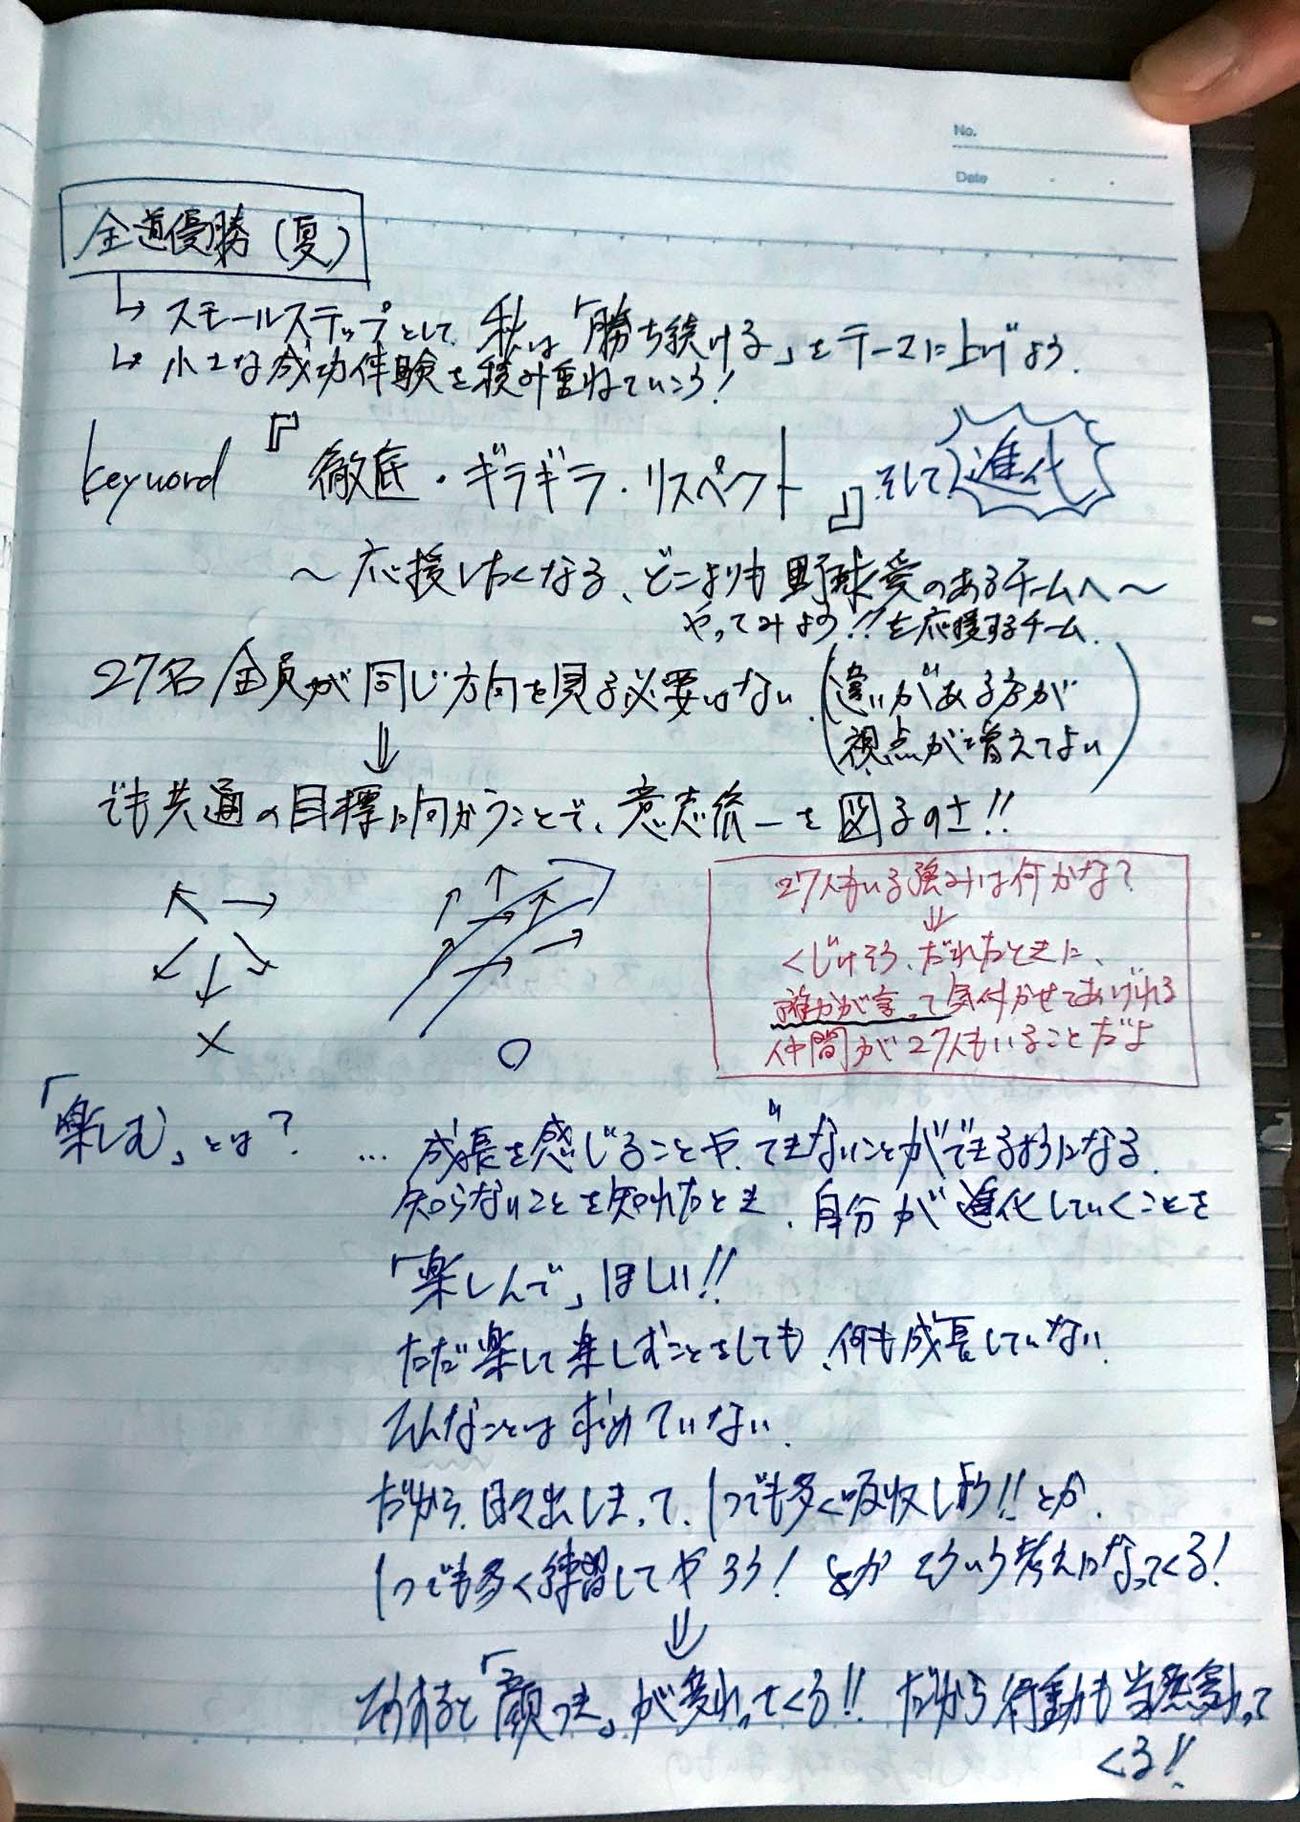 No.
Date
全道優勝(夏)
↳ スモールステップとして、秋は「勝ち続ける」をテーマに上げよう.
↳ 小さな成功体験を積み重ねていこう!
keyword 『徹底・ギラギラ・リスペクト』そして進化
～応援したくなる、どこよりも野球愛のあるチームへ～
やってみよう!!を応援するチーム.
27名全員が同じ方向を見る必要はない.(違いがある方が
視点が増えてよい)
⇓
でも共通の目標に向かうことで、意志統一を図るのさ!!
27人もいる強みは何かな?
⇓
くじけそう、だれたときに、
誰かが言って気付かせてあげれる
仲間が27人もいることだよ
×
○
「楽しむ」とは? … 成長を感じることや、できないことができるようになる.
知らないことを知れたとき、自分が進化していくことを
「楽しんで」ほしい!!
ただ楽して楽しむことをしても、何も成長していない.
そんなことは求めていない.
だから、日々出しきって、1つでも多く吸収しよう!!とか、
1つでも多く練習してやろう! とかそういう考えになってくる!
⇓
そうすると「顔つき」が変わってくる!! だから行動も当然変わって
くる!!